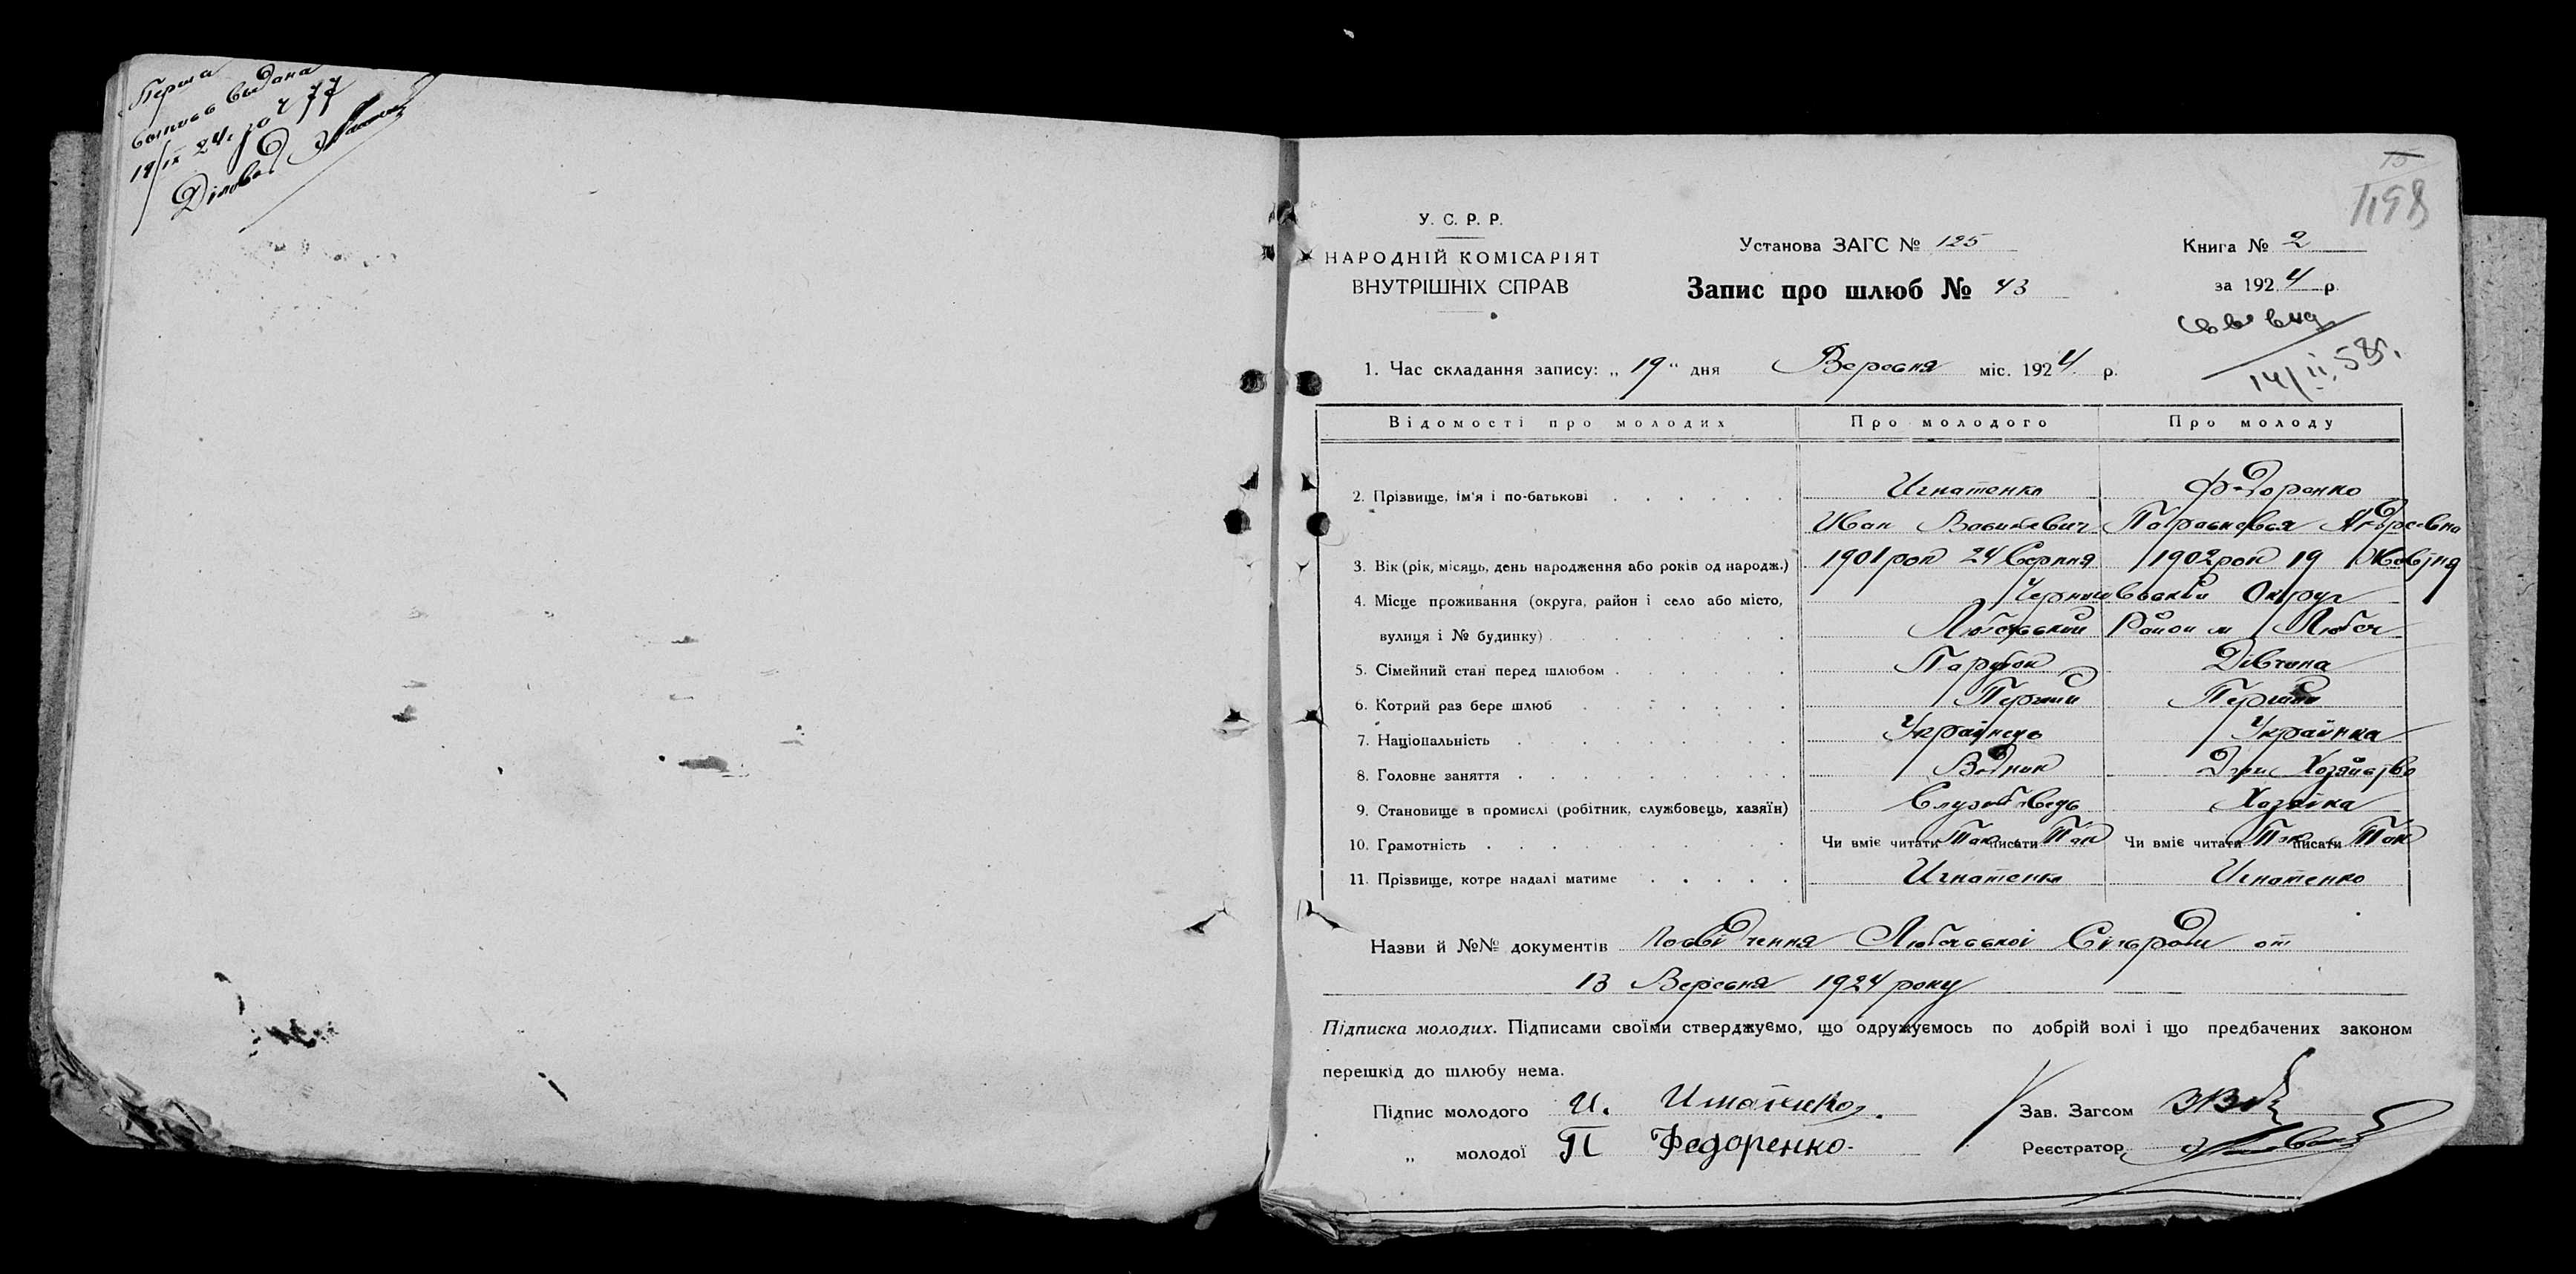 Перша
выпись выдана
19/IX 24 г за ч 77
Діловод
15
1198
У. С. Р. Р.
НАРОДНІЙ КОМІСАРІЯТ
ВНУТРІШНІХ СПРАВ
Установа ЗАГС № 125
Запис про шлюб № 43
Книга № 2
за 1924 р.
14/II 58г.
1. Час складання запису: „ 19 " дня Вересня міс. 1924 р.
Відомості про молодих Про молодого Про молоду
2. Прізвище, ім'я і по-батькові Игнатенко Федоренко
Иван Васильевич Парасковья Андреевна
3. Вік (рік, місяць, день народження або років од народж.) 1901 рок 24 Серпня 1902 рок 19 Жовтня
4. Місце проживання (округа, район і село або місто, Чернигівський Округ
вулиця і № будинку) Любечський Район м Любеч
5. Сімейний стан перед шлюбом Парубок Дівчина
6. Котрий раз бере шлюб Перший Перший
7. Національність Українець Українка
8. Головне заняття Водник Дом Хозяйство
9. Становище в промислі (робітник, службовець, хазяїн) Службовець Хозяйка
10. Грамотність Чи вміє читати Так писати Так Чи вміє читати Так писати Так
11. Прізвище, котре надалі матиме Игнатенко Игнатенко
Назви й №№ документів Посвідчення Любечської Сільради от
13 Вересня 1924 року
Підписка молодих. Підписами своїми стверджуємо, що одружуємось по добрій волі і що предбачених законом
перешкід до шлюбу нема.
Підпис молодого И. Игнатенко. Зав. Загсом
„ молодої П Федоренко. Реєстратор